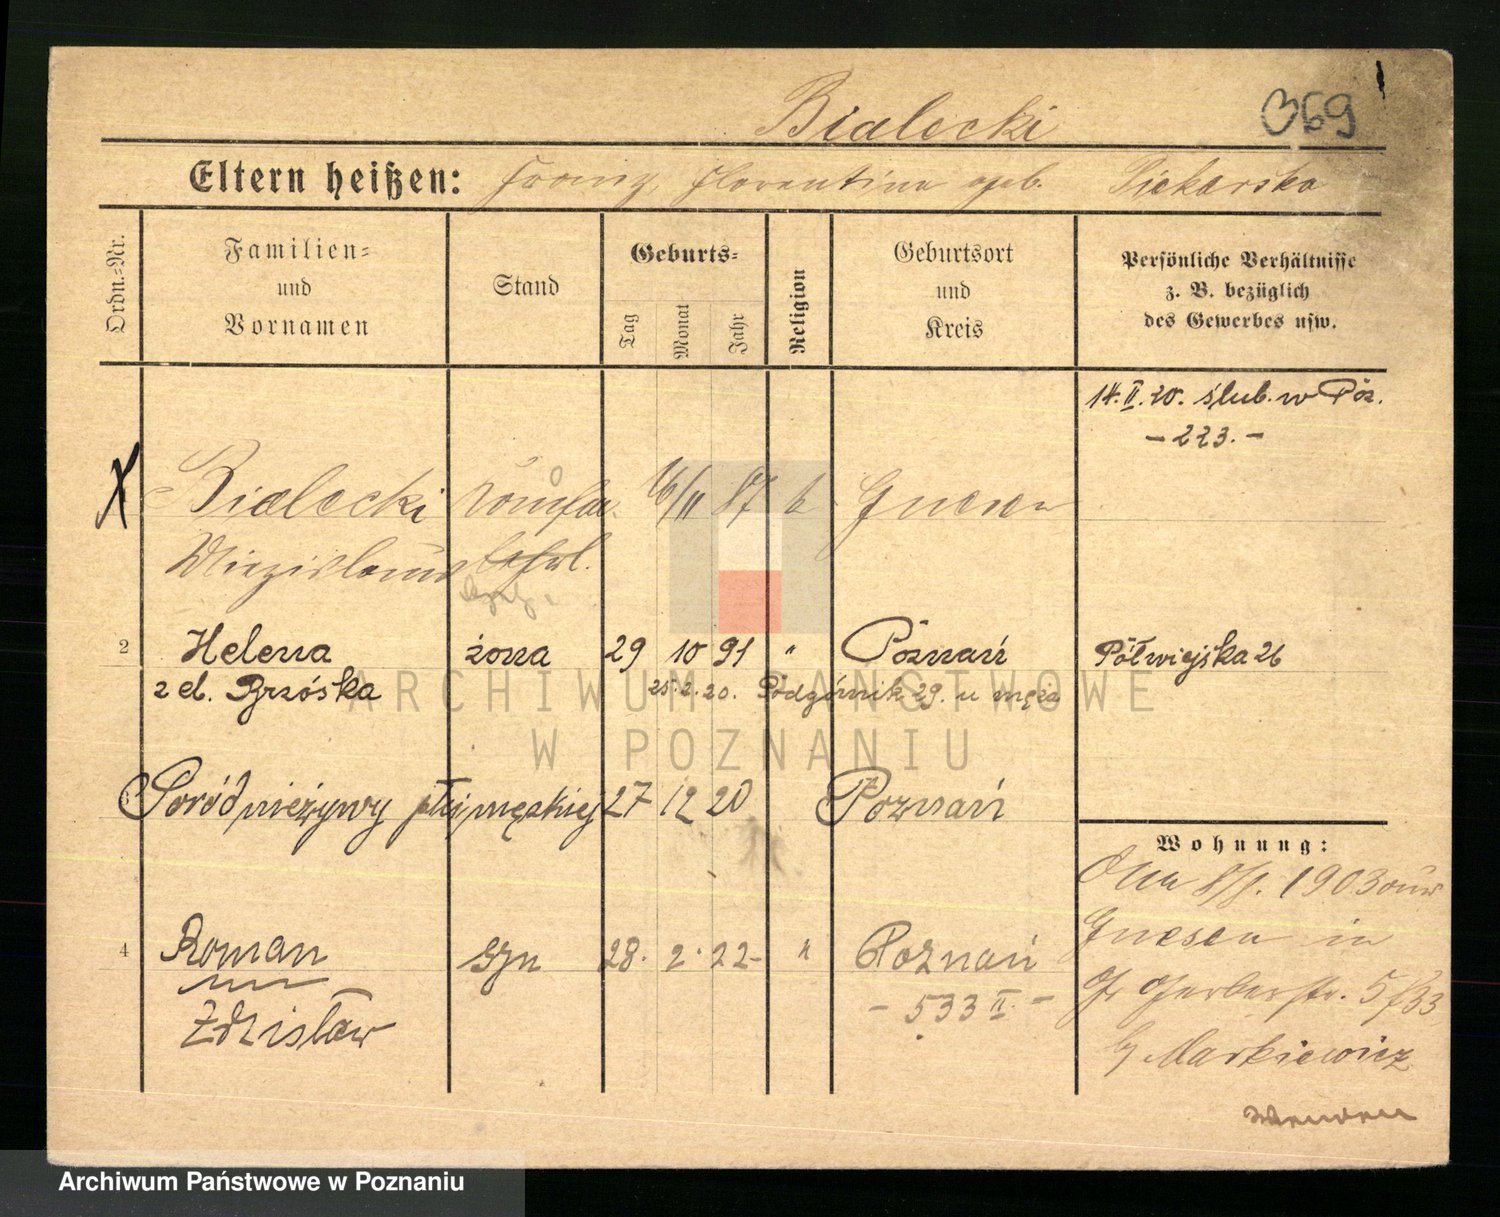 Bialecki
369
Eltern heißen: Franz, Florentina geb. Piekarska
Ordn.=Nr.
Familien=
und
Vornamen
Stand
Geburts=
Tag
Monat
Jahr
Religion
Geburtsort
und
Kreis
Persönliche Verhältnisse
z. B. bezüglich
des Gewerbes usw.
14.II.20. ślub. w Poz.
- 223. -
Bialecki 16/11 87 k Gnesen
2 Helena żona 29 10 91 " Poznań Półwiejska 26
z d. Brzóska 25.2.20. Podgórnik 29. u męża
3 Poród nieżywy płci męskiej 27 12 20 Poznań
Wohnung:
1903 aus
4 Roman syn 28. 2. 22 - " Poznań
Gnesen in
Zdzisław
- 533 II. -
Gr Gerberstr. 5/33
b/ Markiewicz
ARCHIWUM PAŃSTWOWE
W POZNANIU
Archiwum Państwowe w Poznaniu